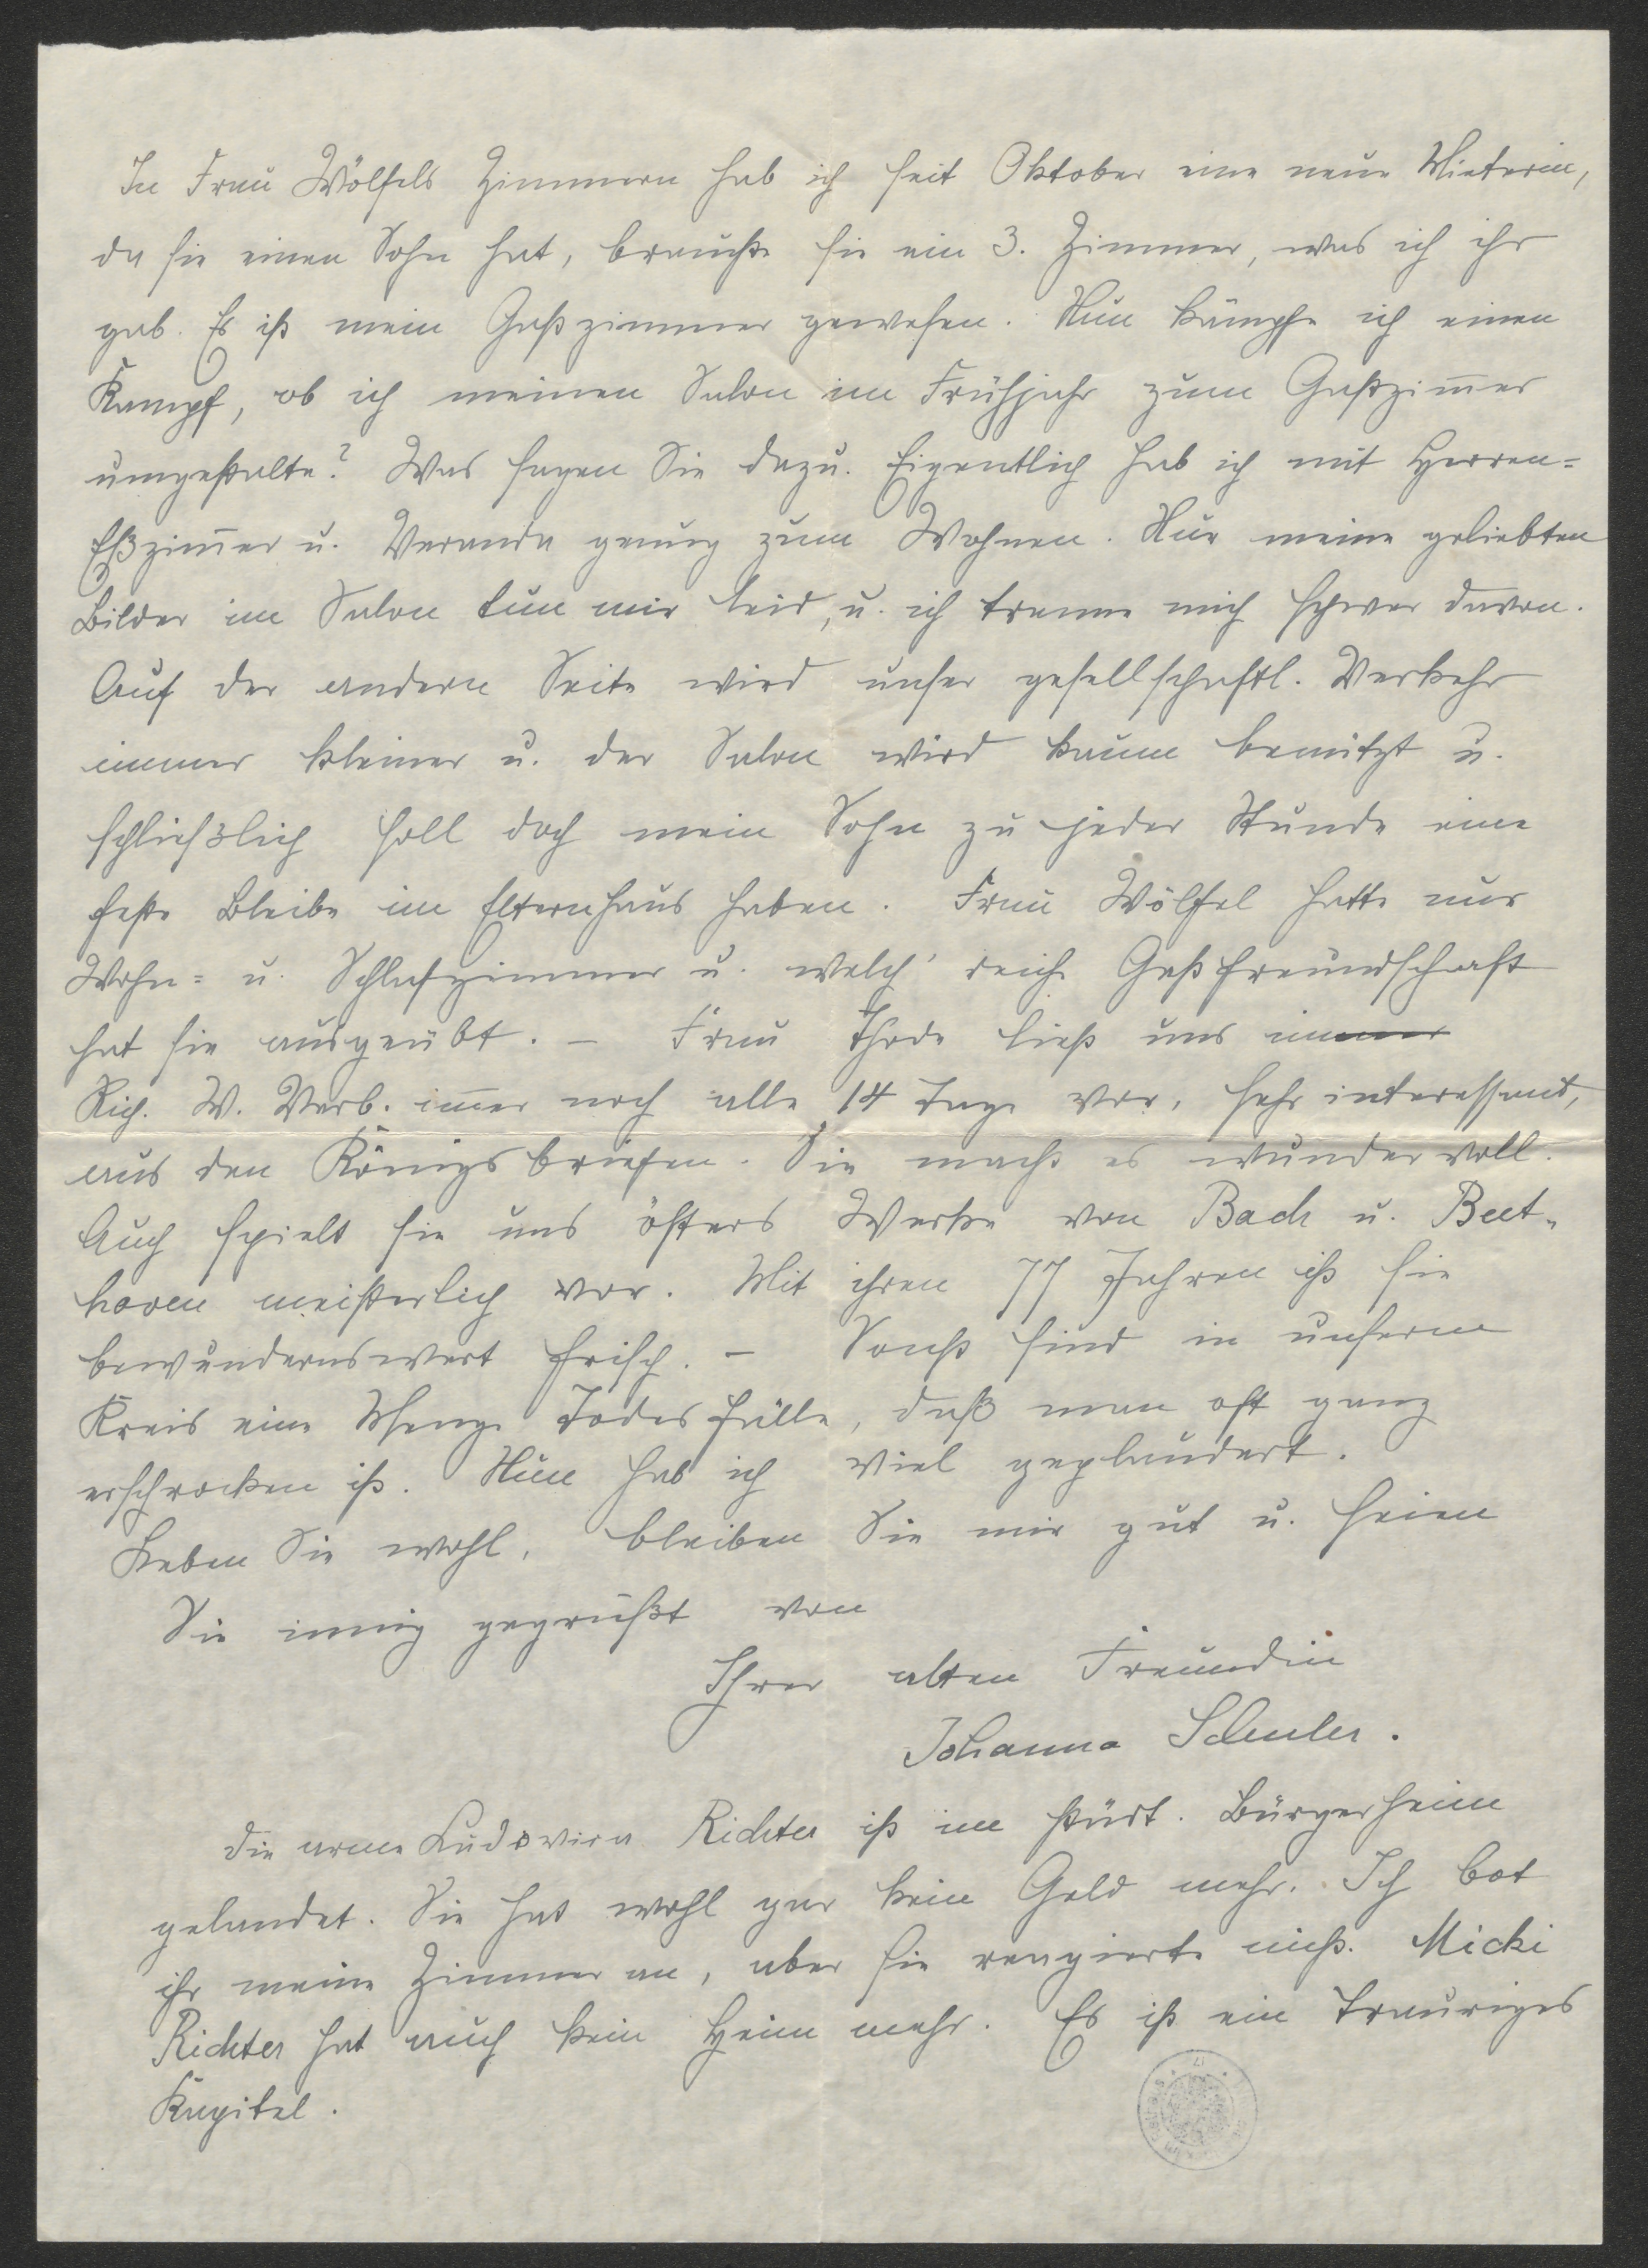 In Frau Wölfels Zimmern hab ich seit Oktober eine neue Mieterin,
da sie einen Sohn hat, brauchte sie ein 3. Zimmer, was ich ihr
gab. Es ist mein Gastzimmer gewesen. Nun kämpfe ich einen
Kampf, ob ich meinen Salon im Frühjahr zum Gastzim̄er
umgestalte? Was sagen Sie dazu. Eigentlich hab ich mit Herren=
Eßzim̄er u. Veranda genug zum Wohnen. Nur meine geliebten
Bilder im Salon tun mir leid, u. ich trenne mich schwer davon.
Auf der andern Seite wird unser gesellschaftl. Verkehr
immer kleiner u. der Salon wird kaum benützt u.
schließlich soll doch mein Sohn zu jeder Stunde eine
feste Bleibe im Elternhaus haben. Frau Wölfel hatte nur
Wohn= u. Schlafzimmer u. welch' reiche Gastfreundschaft
hat sie ausgeübt. – Frau Thode liest uns immer
Rich. W. Verb. im̄er noch alle 14 Tage vor, sehr interessant,
aus den Königsbriefen. Sie macht es wundervoll.
Auch spielt sie uns öfters Werke von Bach u. Beet-
hoven meisterlich vor. Mit ihren 77 Jahren ist sie
bewundernswert frisch. – Sonst sind in unserm
Kreis eine Menge Todesfälle, daß man oft ganz
erschrocken ist. Nun hab ich viel geplaudert.
Leben Sie wohl, bleiben Sie mir gut u. seien
Sie innig gegrüßt von
Ihrer alten Freundin
Johanna Schuler.
Die arme Ludovica Richter ist im städt. Bürgerheim
gelandet. Sie hat wohl gar kein Geld mehr. Ich bot
ihr meine Zimmer an, aber sie reagierte nicht. Micki
Richter hat auch kein Heim mehr. Es ist ein trauriges
Kapitel.